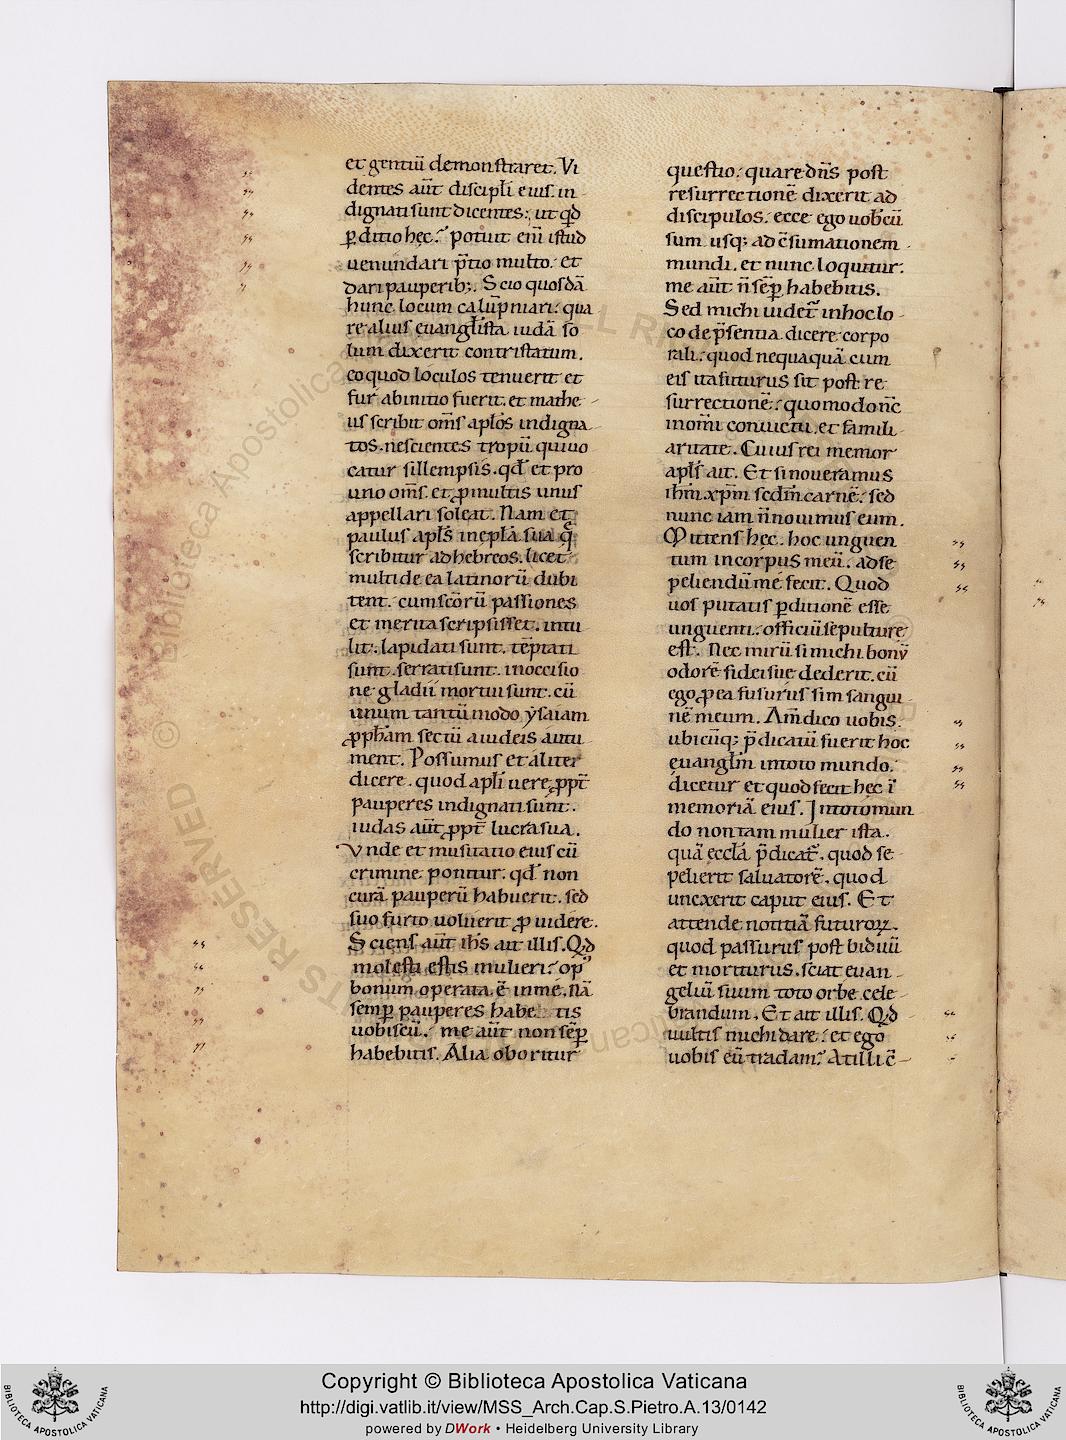 et gentiū demonstraret. Vi
dentes aūt discipl̄i eius. in
dignati sunt dicentes: ut qd̄
ꝑditio hęc? Potuit eni̅ istud
uenundari p̄tio multo. et
dari pauperib;. Scio quosdā
hunc locum calūpniari: qua
re alius euangl̄ista iudā so
lum dixerit contristatum.
eo quod loculos tenuerit et
fur ab initio fuerit. et mathe
us scribit om̄s apl̄os indigna
tos. nescientes tropū qui uo
catur sillempsis. qd̄ et pro
uno om̄s. et ꝓ multis unus
appellari soleat. Nam et
paulus apl̄s in epl̄a sua q̄
scribitur ad hebreos. licet
multi de ea latinorū dubi
tent. cum sc̄orū passiones
et merita scripsisset. intu
lit. lapidati sunt. tēptati
sunt. serrati sunt. in occisio
ne gladii mortui sunt. cū
unum tantū modo ysaiam
ꝓph̄am sectū a iudeis autu
ment. Possumus et aliter
dicere. quod apl̄i uere ꝓpt̄
pauperes indignati sunt.
iudas aūt ꝓpt̄ lucra sua.
Vnde et musitatio eius cū
crimine ponitur. qd̄ non
curā pauperū habuerit. sed
suo furto uoluerit ꝓuidere.
Sciens aūt ih̄s ait illis. Qd̄
molesti estis mulieri? op᾽
bonum operata ē in me. Nā
semꝑ pauperes habe tis
uobiscū. me aūt non sēꝑ
habebitis. Alia oboritur
questio: quare dn̄s post
resurrectionē dixerit ad
discipulos. ecce ego uobcū
sum usq; ad c̄sumationem
mundi. et nunc loquitur:
me aūt n̄ sēꝑ habebitis.
Sed michi uidet᷑ in hoc lo
co de p̄sentia dicere corpo
rali: quod nequaquā cum
eis ita futurus sit post re
surrectionē: quomodo nc̄
in om̄i conuictu. et famili
aritate. Cuius rei memor
apl̄s ait. Et si noueramus
ih̄m xp̄m scd̄m carnē: sed
nunc iam n̄ nouimus eum.
Mittens hęc. hoc unguen
tum in corpus meū. ad se
peliendū me fecit. Quod
uos putatis ꝑditionē esse
unguenti: officiū sepulturę
est. Nec mirū si michi bonū
odorē fidei suę dederit. cū
ego ꝓ ea fusurus sim sangui
nē meum. Am̄ dico uobis.
ubicūq; p̄dicatū fuerit hoc
euangl̄m in toto mundo.
dicetur et quod fecit hęc ī
memoriā eius. In toto mun
do non tam mulier ista.
quā eccl̄a p̄dicat᷑. quod se
pelierit saluatorē. quod
unxerit caput eius. Et
attende notitiā futuroꝝ.
quod passurus post biduū
et moriturus. sciat euan
geliū suum toto orbe cele
brandum. Et ait illis. Qd̄
uultis michi dare. et ego
uobis eū tradam? At illi c̄
Copyright © Biblioteca Apostolica Vaticana
http://digi.vatlib.it/view/MSS_Arch.Cap.S.Pietro.A.13/0142
powered by DWork • Heidelberg University Library